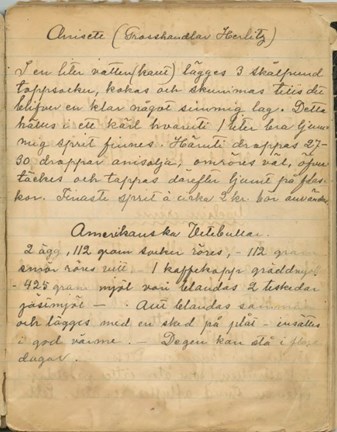 Anisete (Grosshandlar Herlitz)
I en liter vatten (kallt) lägges 3 skålpund
toppsocker, kokas och skummas tills det
blifver en klar något simmig lag. Detta
hälles i ett kärl hvaruti 1 liter bra
sprit finnes. Häruti droppas 27-
30 droppar anisolja, omröres väl, öfver
täckes och tappas därefter ljumt på flas-
kor. Finaste sprit à cirka 2 kr. bör användas
Amerikanska Tebullar.
2 ägg, 112 gram socker röres, - 112 gram
smör röres 1 kaffekopp
- 425 gram mjöl vari blandas 2 teskedar
jästmjöl - . Allt blandas
och lägges med en sked på plåt - insättes
i god värme. - Degen kan stå i flera
dagar.